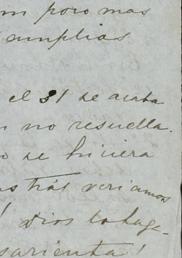 un poco mas
amplias
el 31 se acaba
n no resuella.
o se hiciera
as trás veriamos
! Dios lo haga
sarienta!